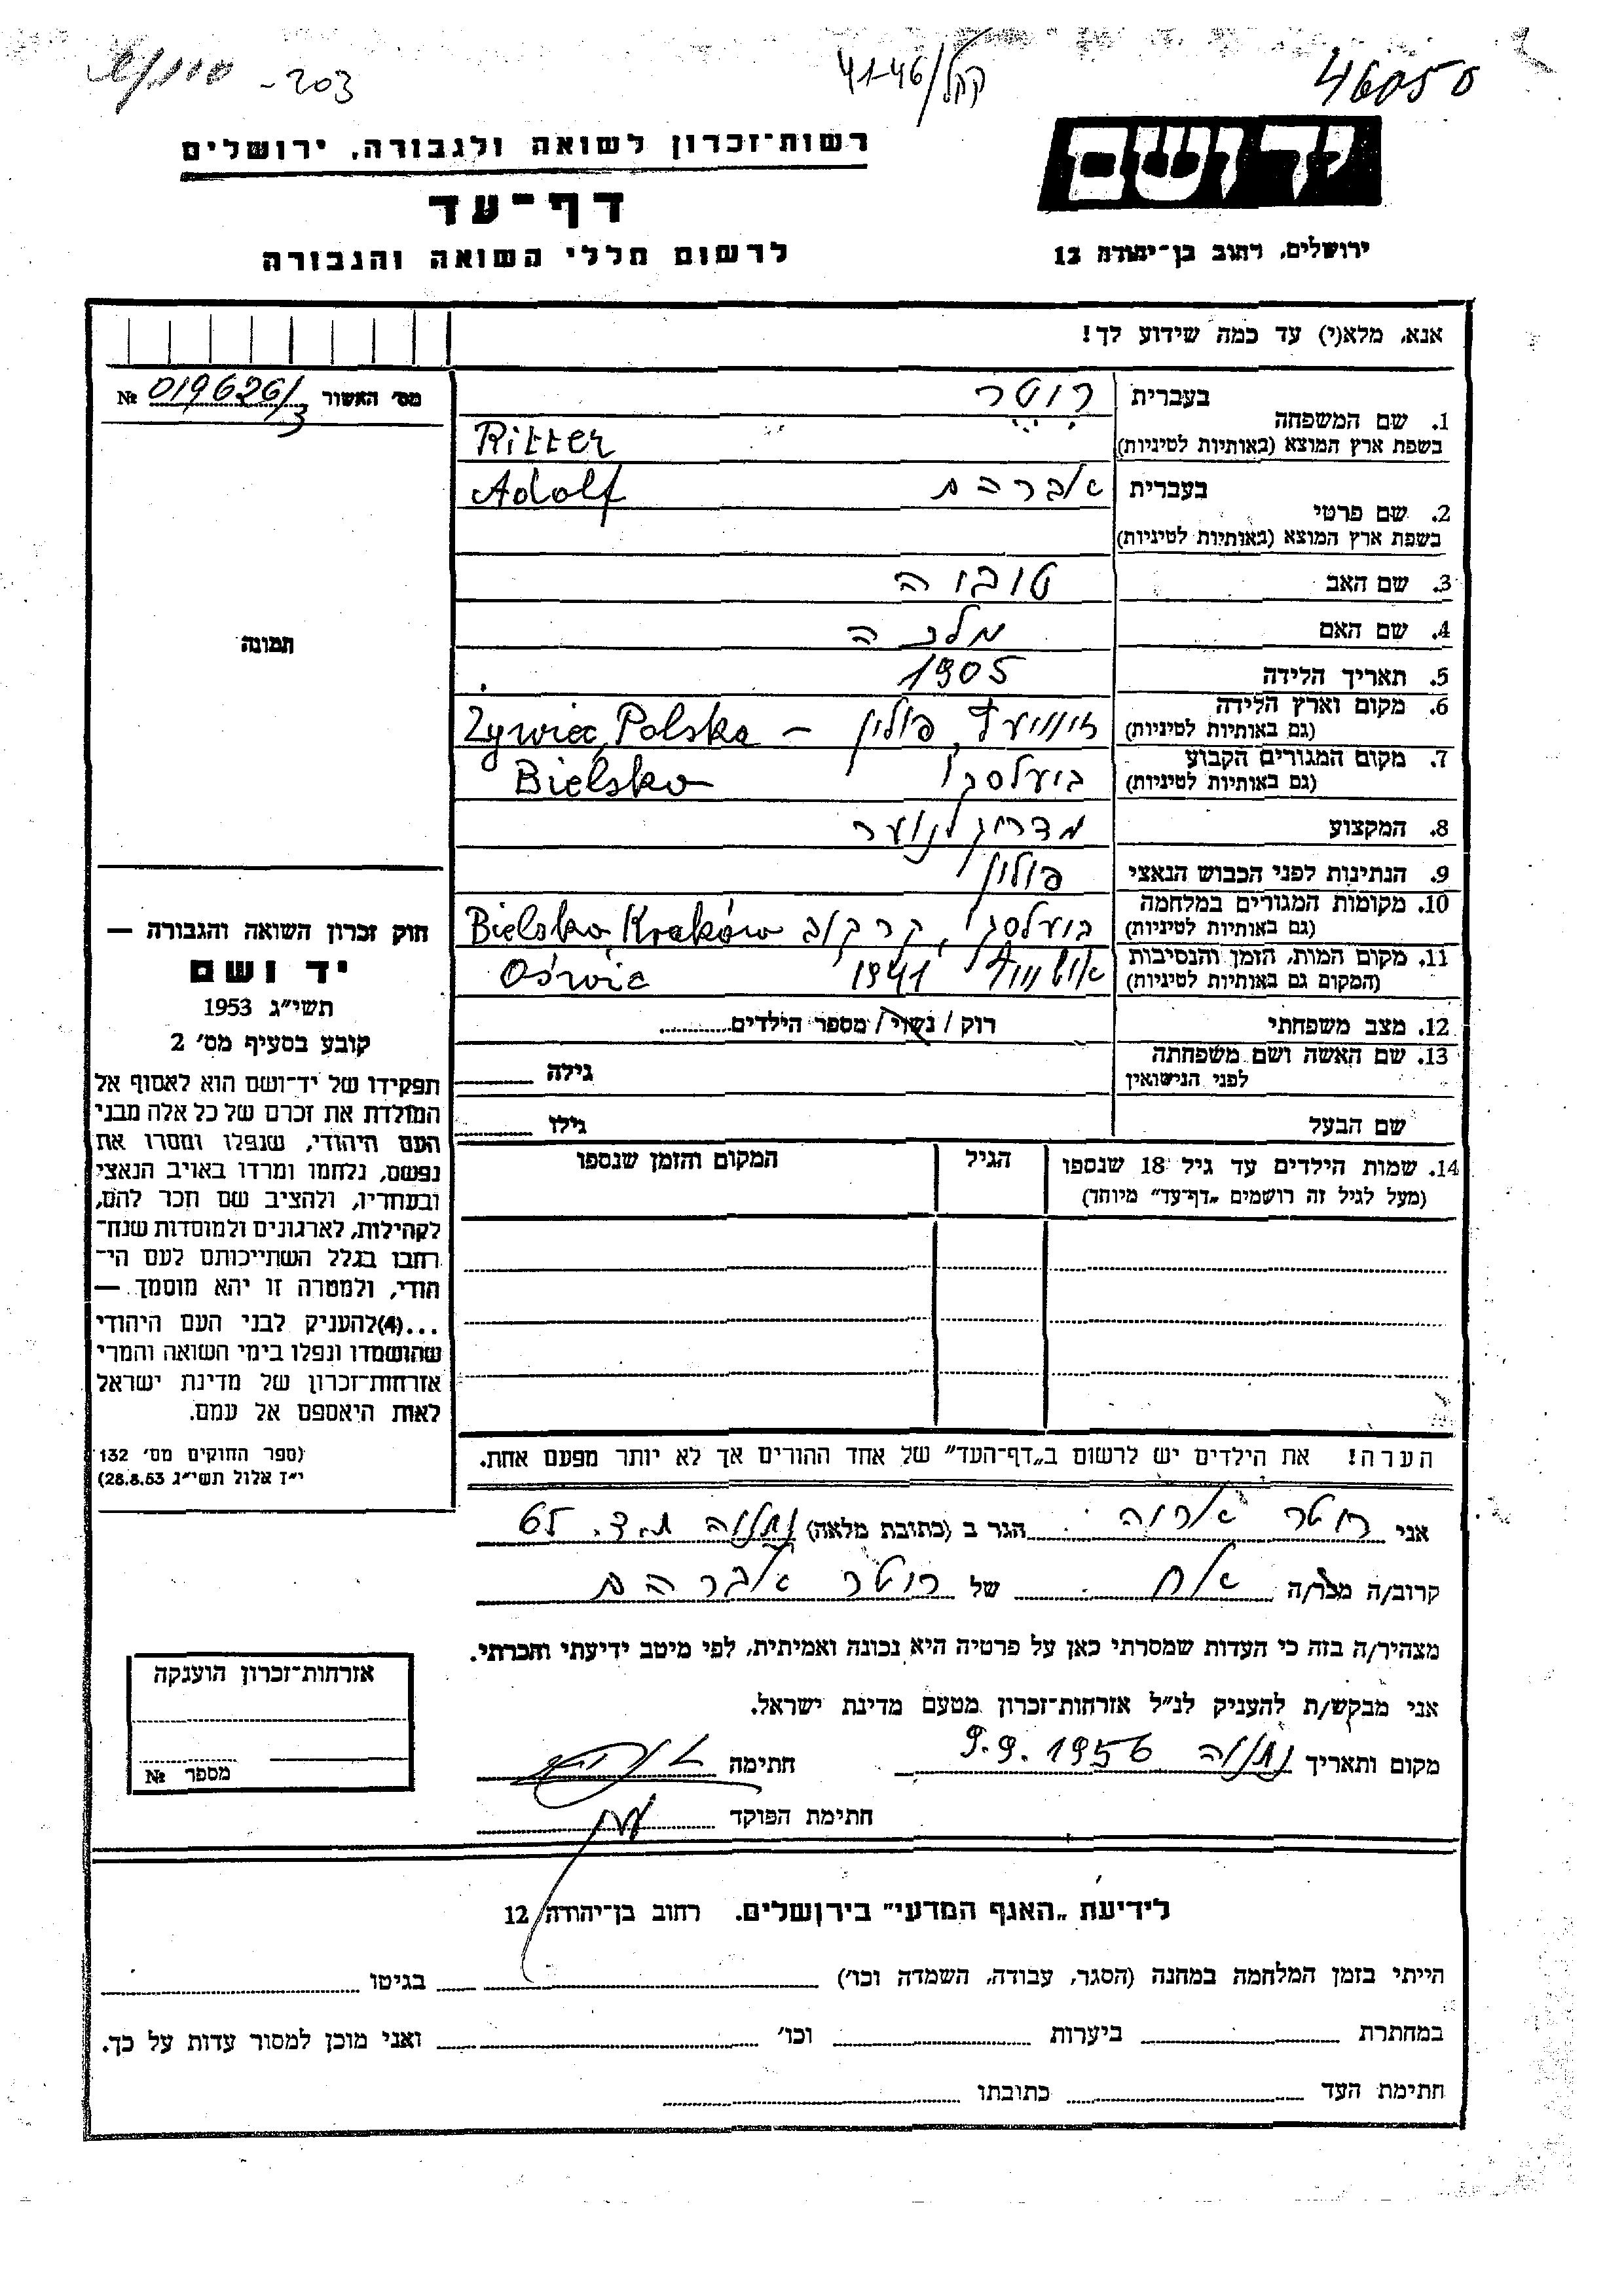 -203
קקל/41-46
46050
רשות־זכרון לשואה ולגבורה, ירושלים
יד ושם
דף־עד
לרשום חללי השואה והגבורה
ירושלים, רחוב בן־יהודה 12
אנא, מלא(י) עד כמה שידוע לך!
מס׳ האשור 019626/3 №
תמונה
1. שם המשפחה בעברית ריטר
בשפת ארץ המוצא (באותיות לטיניות) Ritter
2. שם פרטי בעברית אברהם Adolf
בשפת ארץ המוצא (באותיות לטיניות)
3. שם האב טוביה
4. שם האם מלכה
5. תאריך הלידה 1905
6. מקום וארץ הלידה (גם באותיות לטיניות) פולין – Żywiec, Polska
7. מקום המגורים הקבוע (גם באותיות לטיניות) ביעלסקו Bielsko
8. המקצוע מדריך לנוער
9. הנתינות לפני הכבוש הנאצי פולין
10. מקומות המגורים במלחמה (גם באותיות לטיניות) ביעלסקו, קרקוב Bielsko, Kraków
11. מקום המות, הזמן והנסיבות (המקום גם באותיות לטיניות) 1941 Oświc
12. מצב משפחתי רוק / נשוי / מספר הילדים
13. שם האשה ושם משפחתה לפני הנישואין גילה
שם הבעל גילו
14. שמות הילדים עד גיל 18 שנספו הגיל המקום והזמן שנספו
(מעל לגיל זה רושמים „דף־עד" מיוחד)
חוק זכרון השואה והגבורה —
יד ושם
תשי״ג 1953
קובע בסעיף מס׳ 2
תפקידו של יד־ושם הוא לאסוף אל
המולדת את זכרם של כל אלה מבני
העם היהודי, שנפלו ומסרו את
נפשם, נלחמו ומרדו באויב הנאצי
ובעוזריו, ולהציב שם וזכר להם,
לקהילות, לארגונים ולמוסדות שנח־
רבו בגלל השתייכותם לעם הי־
הודי, ולמטרה זו יהא מוסמך —
...(4) להעניק לבני העם היהודי
שהושמדו ונפלו בימי השואה והמרי
אזרחות־זכרון של מדינת ישראל
לאות היאספם אל עמם.
(ספר החוקים מס׳ 132
י״ז אלול תשי״ג 28.8.53)
הערה! את הילדים יש לרשום ב„דף־העד" של אחד ההורים אך לא יותר מפעם אחת.
אני ריטר אריה הגר ב (כתובת מלאה) נתניה ת.ד. 65
קרוב/ה מכר/ה אח של ריטר אברהם
מצהיר/ה בזה כי העדות שמסרתי כאן על פרטיה היא נכונה ואמיתית, לפי מיטב ידיעתי והכרתי.
אני מבקש/ת להעניק לנ״ל אזרחות־זכרון מטעם מדינת ישראל.
מקום ותאריך נתניה 9.9.1956 חתימה
חתימת הפוקד
אזרחות־זכרון הוענקה
מספר №
לידיעת „האגף המדעי" בירושלים. רחוב בן־יהודה 12
הייתי בזמן המלחמה במחנה (הסגר, עבודה, השמדה וכו׳) בגיטו
במחתרת ביערות וכו׳ ואני מוכן למסור עדות על כך.
חתימת העד כתובתו